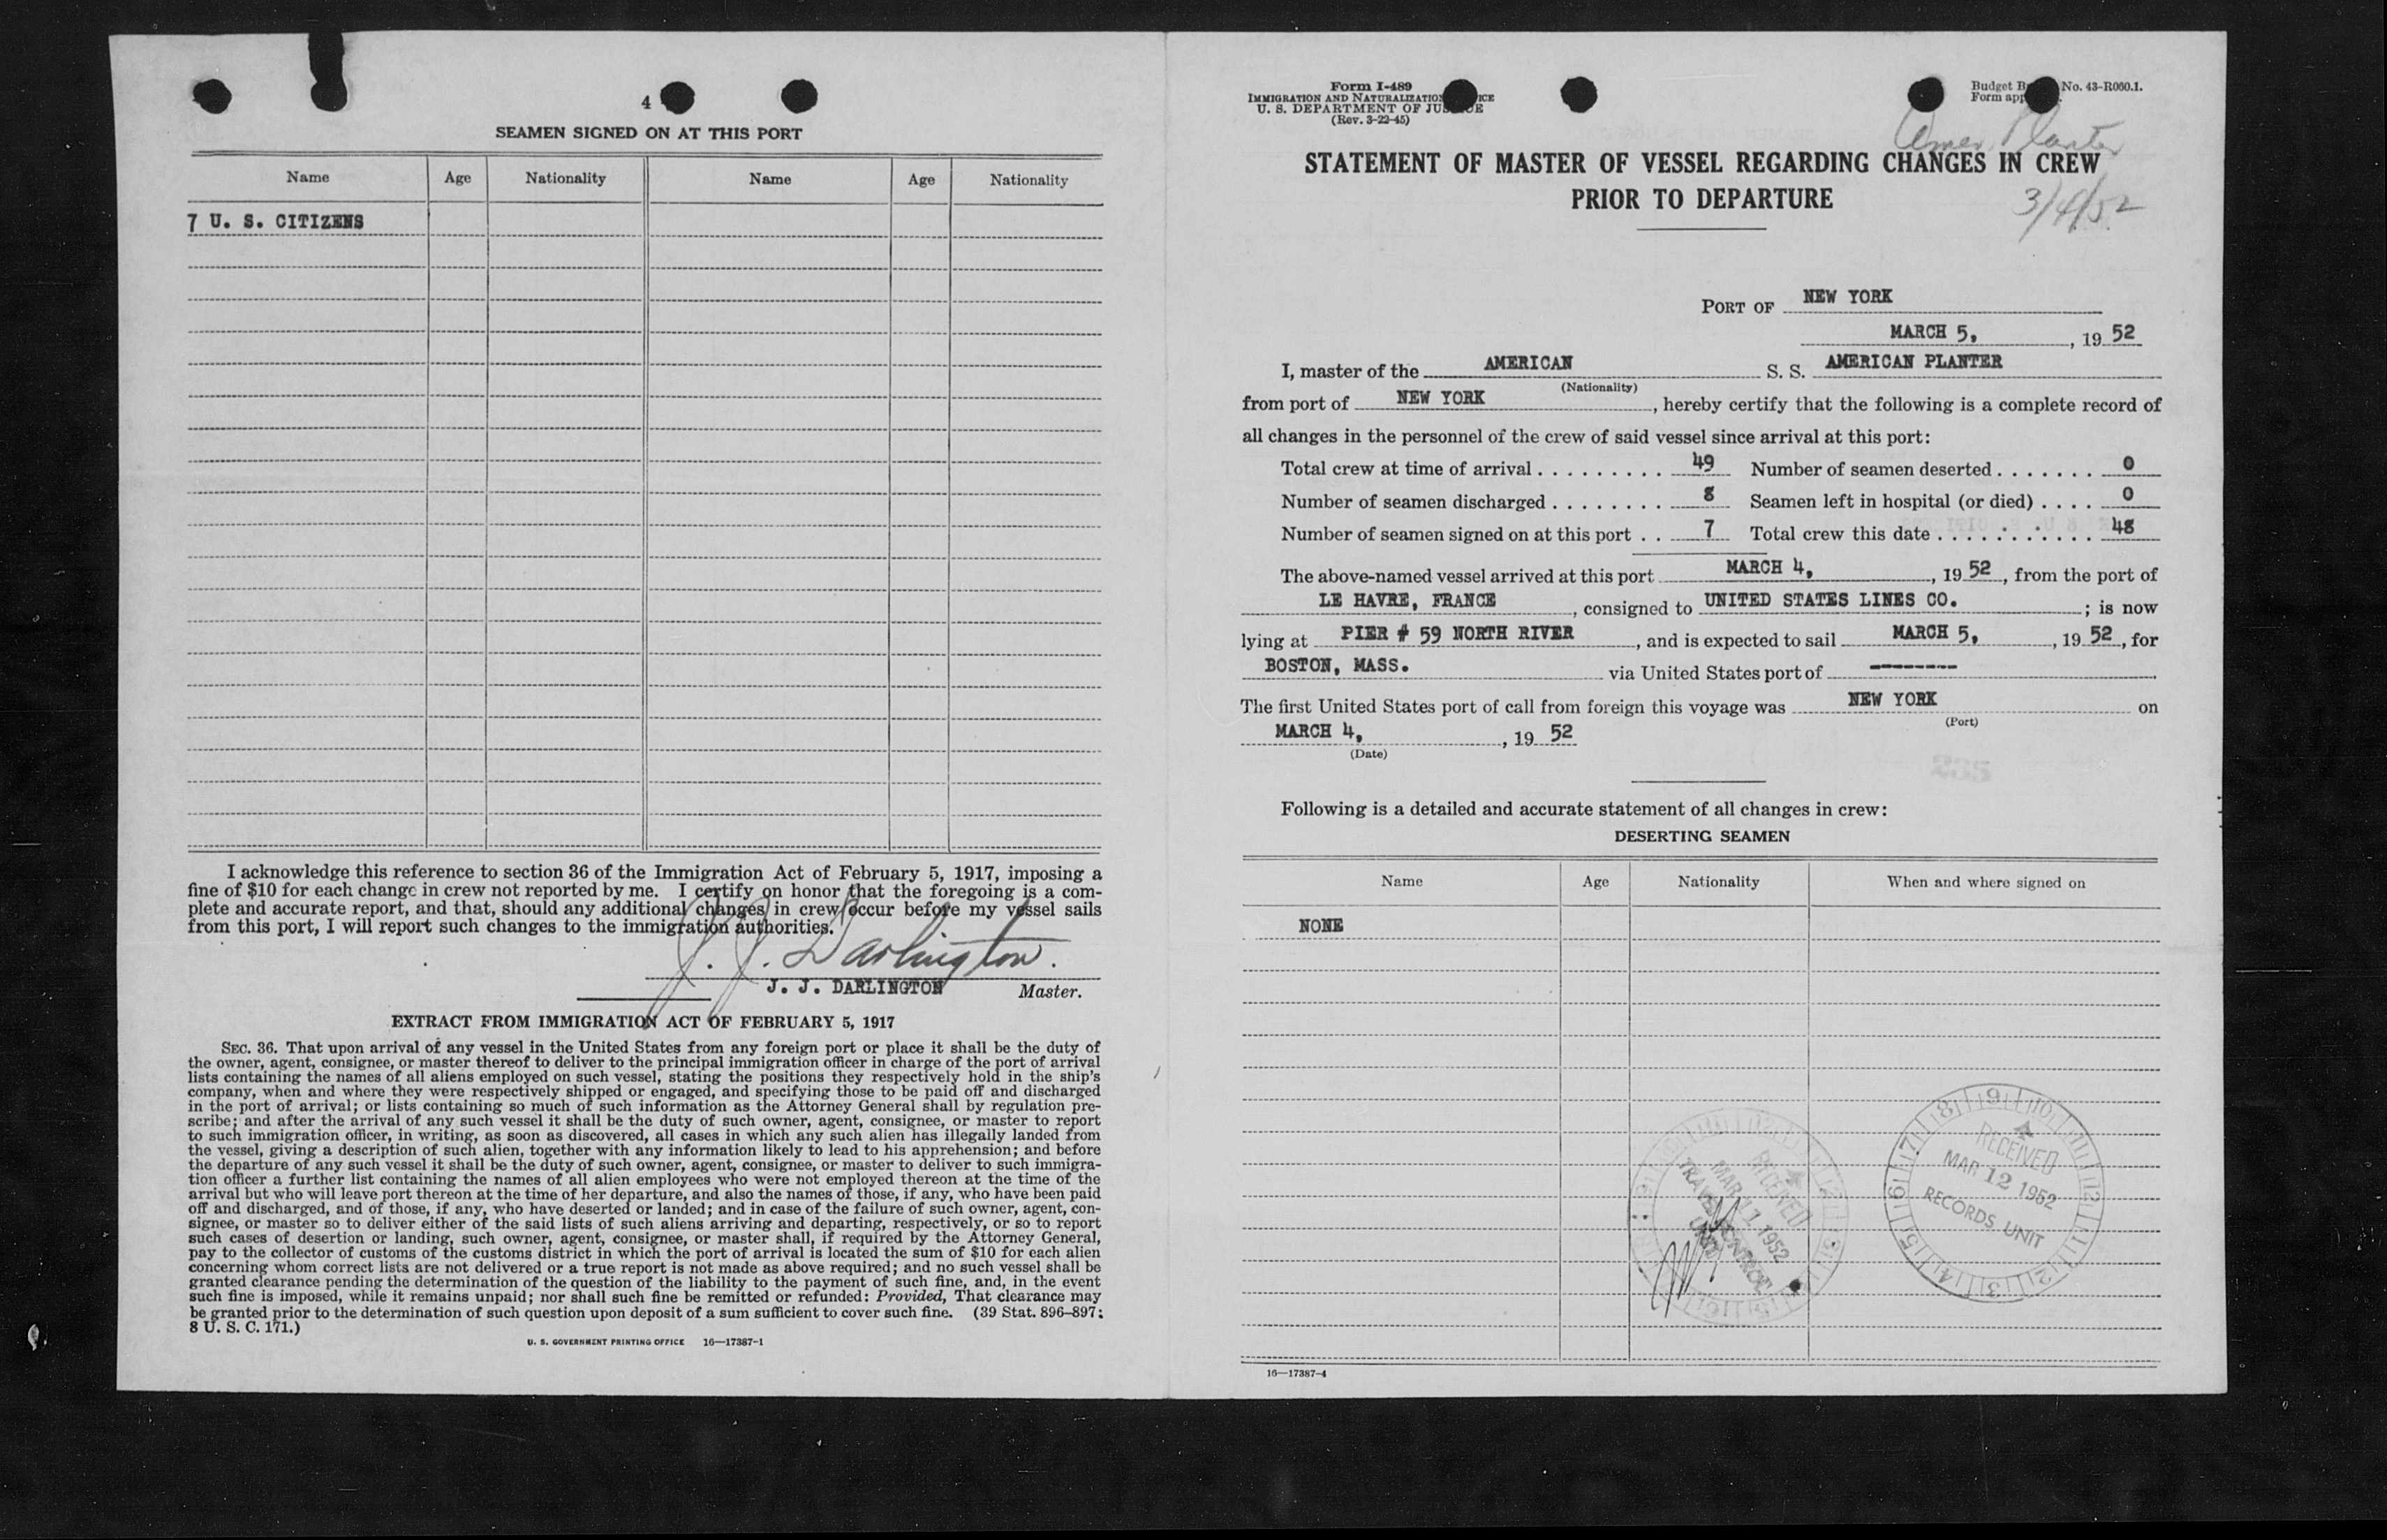 4
SEAMEN SIGNED ON AT THIS PORT
Name Age Nationality Name Age Nationality
7 U. S. CITIZENS
I acknowledge this reference to section 36 of the Immigration Act of February 5, 1917, imposing a
fine of $10 for each change in crew not reported by me. I certify on honor that the foregoing is a com-
plete and accurate report, and that, should any additional changes in crew occur before my vessel sails
from this port, I will report such changes to the immigration authorities.
J. J. Darlington.
J. J. DARLINGTON Master.
EXTRACT FROM IMMIGRATION ACT OF FEBRUARY 5, 1917
SEC. 36. That upon arrival of any vessel in the United States from any foreign port or place it shall be the duty of
the owner, agent, consignee, or master thereof to deliver to the principal immigration officer in charge of the port of arrival
lists containing the names of all aliens employed on such vessel, stating the positions they respectively hold in the ship's
company, when and where they were respectively shipped or engaged, and specifying those to be paid off and discharged
in the port of arrival; or lists containing so much of such information as the Attorney General shall by regulation pre-
scribe; and after the arrival of any such vessel it shall be the duty of such owner, agent, consignee, or master to report
to such immigration officer, in writing, as soon as discovered, all cases in which any such alien has illegally landed from
the vessel, giving a description of such alien, together with any information likely to lead to his apprehension; and before
the departure of any such vessel it shall be the duty of such owner, agent, consignee, or master to deliver to such immigra-
tion officer a further list containing the names of all alien employees who were not employed thereon at the time of the
arrival but who will leave port thereon at the time of her departure, and also the names of those, if any, who have been paid
off and discharged, and of those, if any, who have deserted or landed; and in case of the failure of such owner, agent, con-
signee, or master so to deliver either of the said lists of such aliens arriving and departing, respectively, or so to report
such cases of desertion or landing, such owner, agent, consignee, or master shall, if required by the Attorney General,
pay to the collector of customs of the customs district in which the port of arrival is located the sum of $10 for each alien
concerning whom correct lists are not delivered or a true report is not made as above required; and no such vessel shall be
granted clearance pending the determination of the question of the liability to the payment of such fine, and, in the event
such fine is imposed, while it remains unpaid; nor shall such fine be remitted or refunded: Provided, That clearance may
be granted prior to the determination of such question upon deposit of a sum sufficient to cover such fine. (39 Stat. 896–897;
8 U. S. C. 171.)
U. S. GOVERNMENT PRINTING OFFICE 16—17387-1
Form I-489
IMMIGRATION AND NATURALIZATION
U. S. DEPARTMENT OF
(Rev. 3-22-45)
Budget No. 43-R060.1.
Form
Amer. Planter
STATEMENT OF MASTER OF VESSEL REGARDING CHANGES IN CREW
PRIOR TO DEPARTURE
3/4/52
PORT OF NEW YORK
MARCH 5, , 19 52
I, master of the AMERICAN S. S. AMERICAN PLANTER
(Nationality)
from port of NEW YORK , hereby certify that the following is a complete record of
all changes in the personnel of the crew of said vessel since arrival at this port:
Total crew at time of arrival . . . . . . . . . 49 Number of seamen deserted . . . . . . . 0
Number of seamen discharged . . . . . . . . 8 Seamen left in hospital (or died) . . . . 0
Number of seamen signed on at this port . . 7 Total crew this date . . . . . . . . . . . 48
The above-named vessel arrived at this port MARCH 4, , 19 52 , from the port of
LE HAVRE, FRANCE , consigned to UNITED STATES LINES CO. ; is now
lying at PIER # 59 NORTH RIVER , and is expected to sail MARCH 5, , 19 52 , for
BOSTON, MASS. via United States port of --------
The first United States port of call from foreign this voyage was NEW YORK on
(Port)
MARCH 4, , 19 52
(Date)
235
Following is a detailed and accurate statement of all changes in crew:
DESERTING SEAMEN
Name Age Nationality When and where signed on
NONE
RECEIVED
MAR 11 1952
TRAVEL CONTROL
UNIT
RECEIVED
MAR 12 1952
RECORDS UNIT
16—17387-4